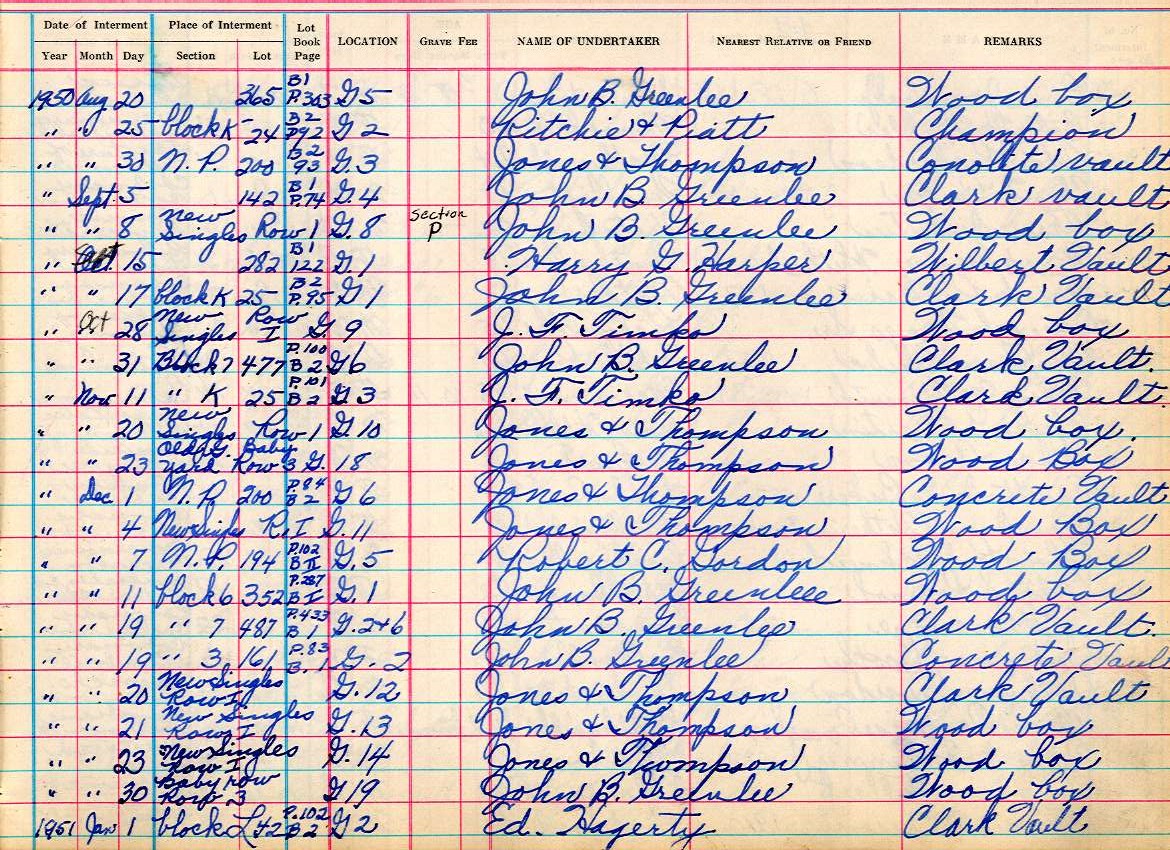 Date of Interment Place of Interment Lot Book Page LOCATION GRAVE FEE NAME OF UNDERTAKER NEAREST RELATIVE OR FRIEND REMARKS
Year Month Day Section Lot
1950 Aug 20 265 B1 P.303 G 5 John B. Greenlee Wood box
" " 25 block K 24 B2 P92 G 2 Ritchie & Piatt Champion
" " 30 N.P. 200 B2 93 G.3 Jones & Thompson Conolite vault
" Sept. 5 142 B1 P.74 G.4 John B. Greenlee Clark vault
" " 8 new Singles Row 1 G.8 Section P John B. Greenlee Wood box
" 15 282 B1 122 G.1 Harry G. Harper Wilbert Vault
" " 17 block K 25 B2 P.95 G 1 John B. Greenlee Clark Vault
" Oct 28 New Singles Row I G. 9 J. F. Timko Wood box
" " 31 Block 7 477 P.100 B 2 G6 John B. Greenlee Clark Vault.
" Nov 11 " K 25 P.101 B 2 G 3 J. F. Timko Clard Vault.
" " 20 new Singles Row 1 G.10 Jones & Thompson Wood box.
" " 23 yard Baby Row 3 G. 18 Jones & Thompson Wood Box
" Dec 1 N.P. 200 P.84 B 2 G 6 Jones & Thompson Concrete Vault
" " 4 New Singles R. I G.11 Jones & Thompson Wood Box
" " 7 N.P. 194 P.102 B II G.5 Robert C. Gordon Wood Box
" " 11 block 6 352 P.287 B I G.1 John B. Greenleee Wood box
" " 19 " 7 487 P.433 B 1 G.2+6 John B. Greenlee Clark Vault.
" " 19 " 3 161 P.83 B. 1 G. 2 John B. Greenlee Concrete Vault
" " 20 New Singles Row I G.12 Jones & Thompson Clark Vault
" " 21 New Singles Row I G.13 Jones & Thompson Wood box
" " 23 New Singles Row I G.14 Jones & Thompson Wood box
" " 30 Baby row Row 3 G19 John B. Greenlee Wood box
1951 Jan 1 block L 42 P.102 B 2 G 2 Ed. Hagerty Clark Vault